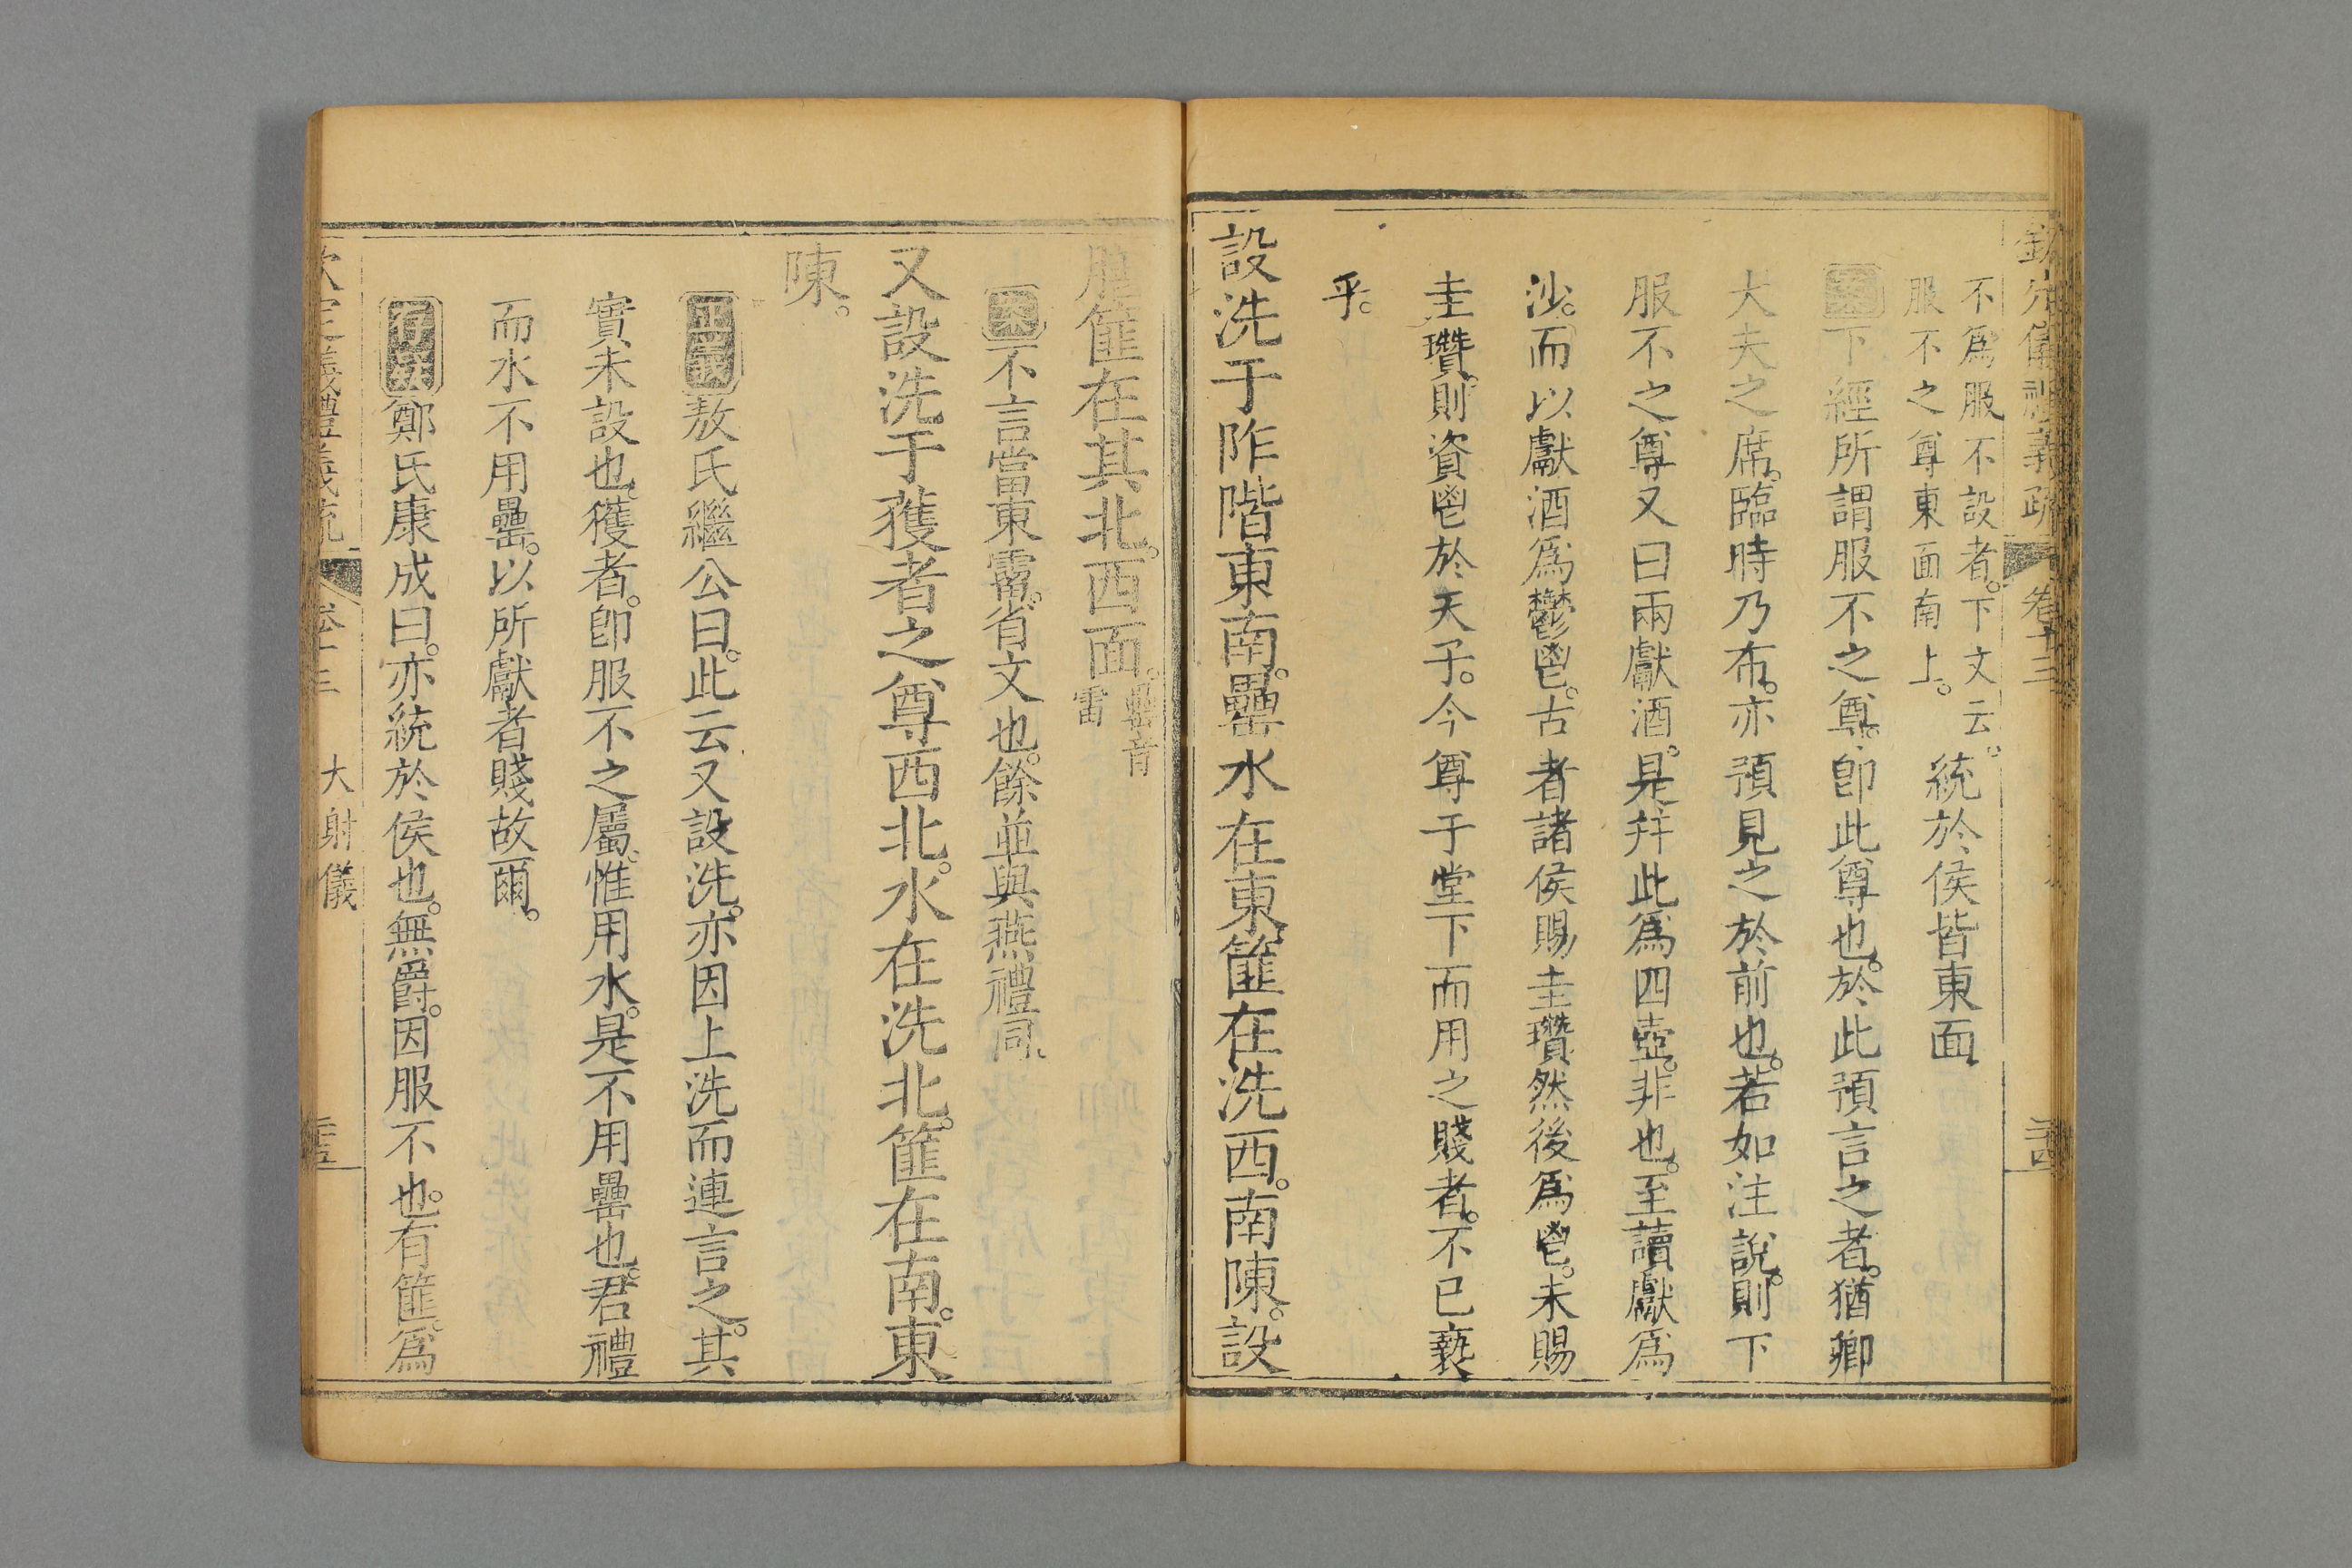 欽定儀禮義疏 卷十三 二十四
不爲服不設者。下文云。
服不之尊東面南上。
統於侯皆東面
案下經所謂服不之尊。卽此尊也。於此預言之者。猶卿
大夫之席。臨時乃布。亦預見之於前也。若如注說。則下
服不之尊又曰兩獻酒。是幷此爲四壺。非也。至讀獻爲
沙。而以獻酒爲鬱鬯。古者諸侯賜圭瓚然後爲鬯。未賜
圭瓚。則資鬯於天子。今尊于堂下而用之賤者。不已褻
乎。
設洗于阼階東南。罍水在東。篚在洗西。南陳。設
膳篚在其北。西面。罍音
雷
案不言當東霤。省文也。餘並與燕禮同。
又設洗于獲者之尊西北。水在洗北。篚在南。東
陳。
正義敖氏繼公曰。此云又設洗。亦因上洗而連言之。其
實未設也。獲者。卽服不之屬。惟用水。是不用罍也。君禮
而水不用罍。以所獻者賤故爾。
存疑鄭氏康成曰。亦統於侯也。無爵。因服不也。有篚。爲
欽定儀禮義疏 卷十三 大射儀 二十五